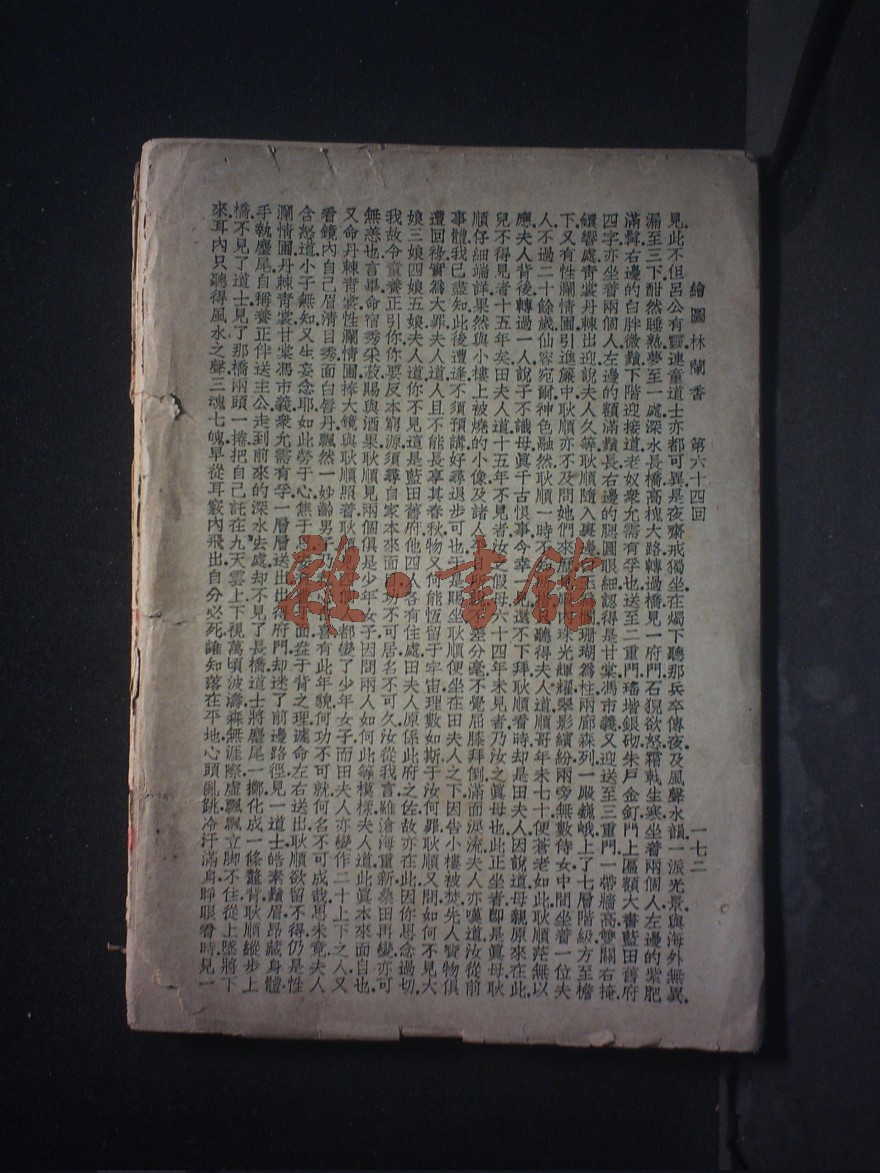 繪圖林蘭香 第六十四回 一七二
見此不但呂公有靈連童道士亦都可異是夜齋戒獨坐在燭下聽那兵卒傳夜及風聲水韻一派光景與海外無異
漏至三下酣然睡熟夢至一處深水長橋高槐大路轉過橋見一府門石猊欲怒霜戟生寒坐着兩個人左邊的紫肥
滿髯右邊的白胖微鬚下階迎接道老奴衆允需有孚也送至二重門瑤堦銀砌朱戶金釘門上匾額大書藍田舊府
四字亦坐着兩個人左邊的額滿鬚長右邊的腮圓眼細認得是甘棠馮市義又迎送至三重門一帶牆高雙關右掩
響處青裳丹棘出迎說夫人久等耿順隨入裏邊 珊瑚爲柱兩廊森列一殿巍峨上了七層階級方至檐
下又有性瀾情圃引進簾中耿順亦不及問她們來 珠光輝耀翠影繽紛兩旁無數侍女中間坐着一位夫
人不過二十餘歲仙容宛爾神色融然耿順一時不 聽得夫人道順哥年未七十便蒼老如此耿順茫無以
應夫人背後轉過一人說子不識母眞千古恨事今幸一見還不下拜耿順看時却是田夫人因說道母親原來在此
兒不得見者十五年矣田夫人道十五年不見者汝之假母六十四年未見者乃汝之眞母也此正坐者卽是眞母耿
順仔細端詳果然與小樓上被燒的小像及諸人 差分毫不覺屈膝拜倒滿面淚流夫人亦嘆道汝從前
事體我已盡知此後遭逢不須預講好尋退步可也于是賜坐耿順便坐在田夫人之下因告小樓被焚先人寶物俱
遭回祿實爲大罪夫人道人且不能長享其春秋物又何能恆留于宇宙理數如斯于汝何罪耿順又問如何不見大
娘三娘四娘五娘夫人道你不見這是藍田舊府他四人各有住處田夫人原係此府之佐故亦在此因你思念過切
我故令童養正引你你要反本窮源須尋自家本來面 功不可居名不可久汝從我言雖滄海重新桑田再變亦可
無恙也言畢命宿秀采菽賜與酒果耿順見兩個俱是少年女子因問兩人如何此等模樣夫人道此眞本來面目也
又命丹棘青裳性瀾情圃捧大鏡與耿順照着耿 都變了少年女子而田夫人亦變作二十上下之人又
看鏡內自己眉清目秀面白唇丹飄然一妙齡男子乃 喜有此年貌何功不可就何名不可成戲思未竟夫人
含怒道小子無知又生妄念耶如此勞于心焦于思 面盎于背之理遽命左右送出耿順欲留不得仍是性
瀾情圃丹棘青裳甘棠馮市義衆允需有孚一層層送出出得府門却迷了前邊路徑見一道士皓素鬚眉昂藏身體
手執麈尾自稱養正伴送主公走到前來的深水去處却不見了長橋道士將麈尾一擲化成一條鼇背耿順縱步上
橋不見了道士見了那橋兩頭一捲把自己託在九天雲上下視萬頃波濤森無涯際虛飄飄立脚不住從上墜將下
來耳內只聽得風水之聲三魂七魄早從耳竅內飛出自分必死誰知落在平地心頭亂跳冷汗滿身睜眼看時見一
雜·書館